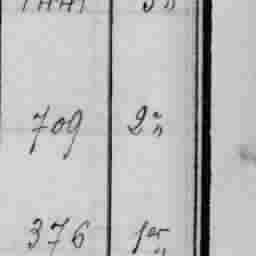 709 2e "
376 1er "